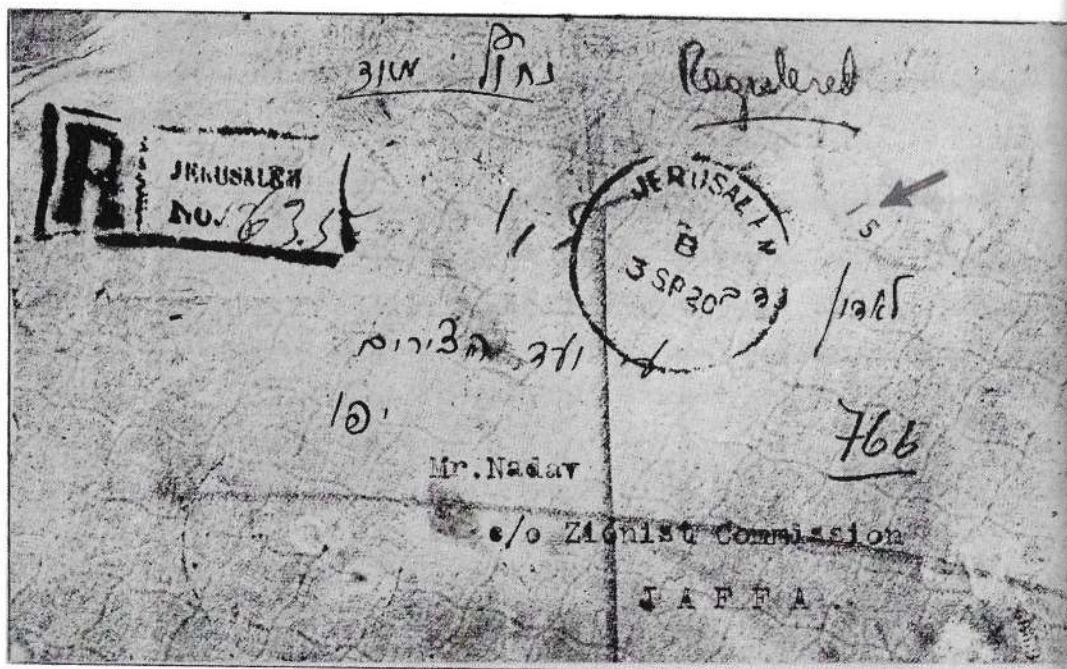 נחוץ מאוד
Registered
R
JERUSALEM
No.
JERUSALEM
B
3 SP 20
S
לאדון
ועד הצירים
יפו
766
Mr.Nadav
c/o Zionist Commission
JAFFA